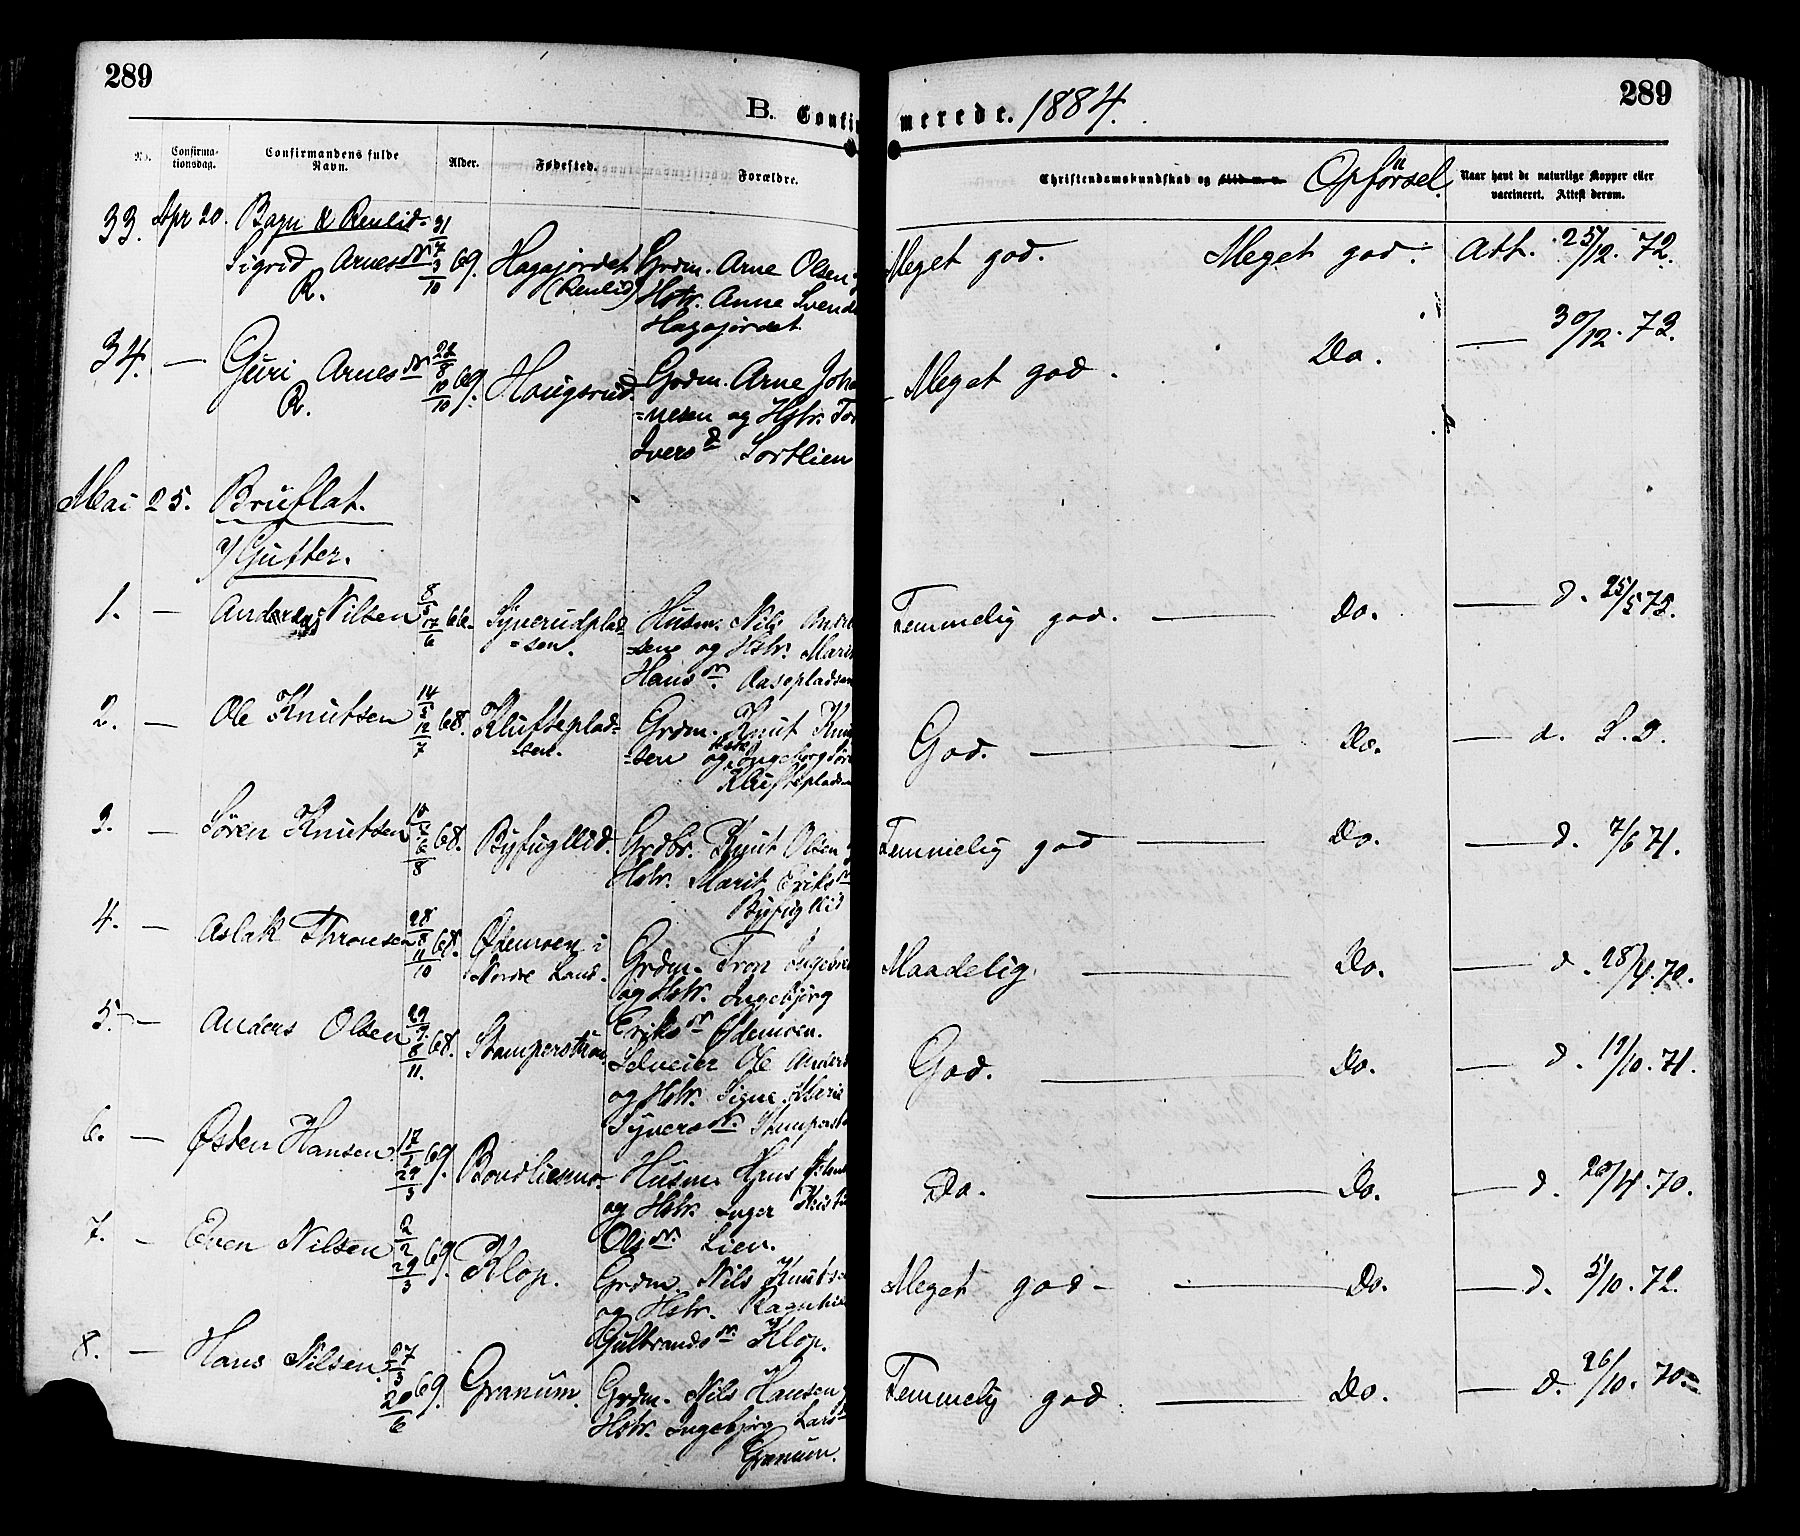 289
289
B. Confirmerede. 1884.
No. Confirmationsdag. Confirmandens fulde Navn. Alder. Fødested. Forældre. Christendomskundskab og Flid m. v. Opførsel Naar havt de naturlige Kopper eller vaccineret. Attest derom.
33. Apr 20. Bagn & Renlid
Sigrid Arnesdr R. 31/7 3/10 69. Hagajordet (Renlid) Grdm. Arne Olsen
Hstr. Anne Svends
Hagajordet
Meget god. Meget god. Att. 25/12. 72.
34. — Guri Arnesdr R. 22/8 10/10 69. Haugsrud Grdm. Arne Joha
=nesen og Hstr. Tor
Iversd Sortlien
Meget god. Do. — 30/12. 73.
Mai 25. Bruflat.
Gutter.
1. — Anders Nilsen 8/5 17/6 66. Syverudplad=sen. Husm. Nils Andr
=sen og Hstr. Marit
Hansdr. Aasepladsen
Temmelig god. — Do. — d. 25/5 72.
2. — Ole Knutsen 14/5 12/7 68. Klufteplad=sen. Grdm. Knut Knu
=sen og Hstr. Ingeborg Sør
Kluftepladsen
God. — Do. — d. S. D.
3. — Søren Knutsen 68. Byfugllid. Grdbr. Knut Olsen
Hstr. Marit Eriksdr
Byfuglid
Temmelig god — Do. — d. 7/6 71.
4. — Aslak Thronsen 28/8 11/10 68. Ødemoen i Nordre Land. Grdm. Tron Ingebre
og Hstr. Ingebjørg
Eriksdr Ødemoen.
Maadelig. — Do. — d. 28/4. 70.
5. — Anders Olsen 29/9. 8/11. 68. Stamperstuen Selveier Ole Anders
og Hstr. Signe Marie
Syversdr. Stamperst
God. — Do. — d. 19/10. 71.
6. — Østen Hansen. 17/2 29/3 69. Baadliemo. Husm. Hans
og Hstr. Inger Kristi
Olsdr. Lien.
Do. — Do. — d. 20/4. 70.
7. — Even Nilsen 2/2 29/3 69. Klop. Grdm Nils Knuts
og Hstr. Ragnhil
Gulbrandsdr Klop.
Meget god — Do. — d. 5/10. 72.
8. — Hans Nilsen. 27/3 20/6 69. Granum. Grdm. Nils Hansen
Hstr. Ingebjørg Lars
Granum.
Temmelig god. — Do. — d. 26/10. 70